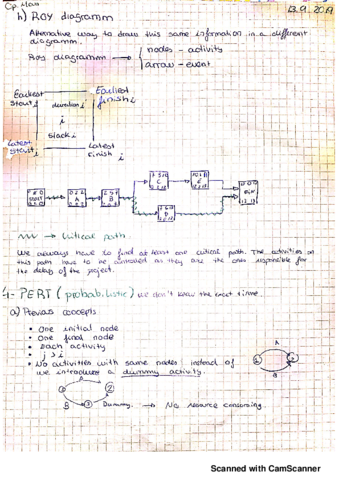 13.9.2019
h) ROY diagramm
Alternative way to draw this same information in a different
diagramm.
Roy diagramm
nodes - activity
arrow - event
Earliest
start i
Earliest
finish i
duration i
i
slack i
Latest
start i
Latest
Finish i
START
A
B
C
D
E
→ Critical path.
We always have to find at least one critical path. The activities on
this path have to be controlled as they are the ones responsible for
the delay of the project.
PERT (probabilistic) we don't know the exact time.
a) Previous concepts
• One initial node
• One final node
• Each activity
• j > i
• No activities with same nodes instead of
we introduce a dummy activity.
A
B
A
B
2
3
Dummy. → No resource consuming.
Scanned with CamScanner